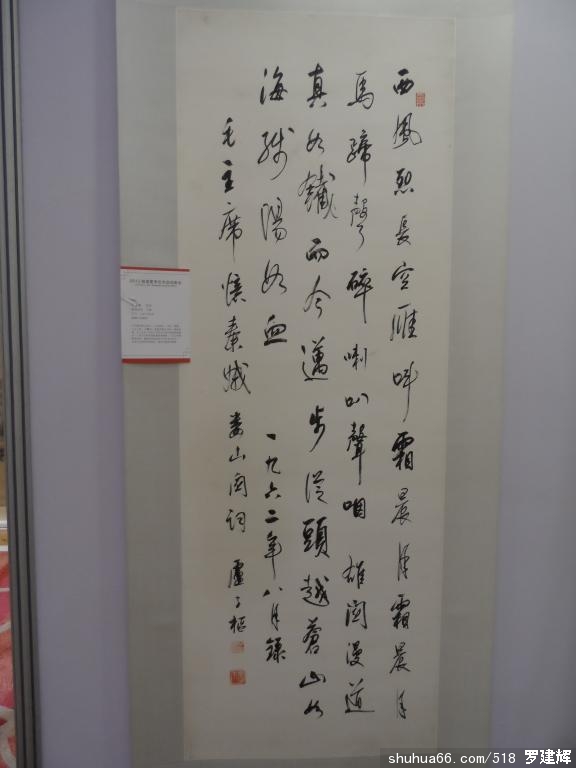 西風烈長空雁叫霜晨月霜晨月
馬蹄聲碎喇叭聲咽雄関漫道
真如鐵而今邁步從頭越蒼山如
海殘陽如血 一九六二年八月錄
毛主席憶秦娥婁山関詞 盧子樞
shuhua66.com/518 罗建辉